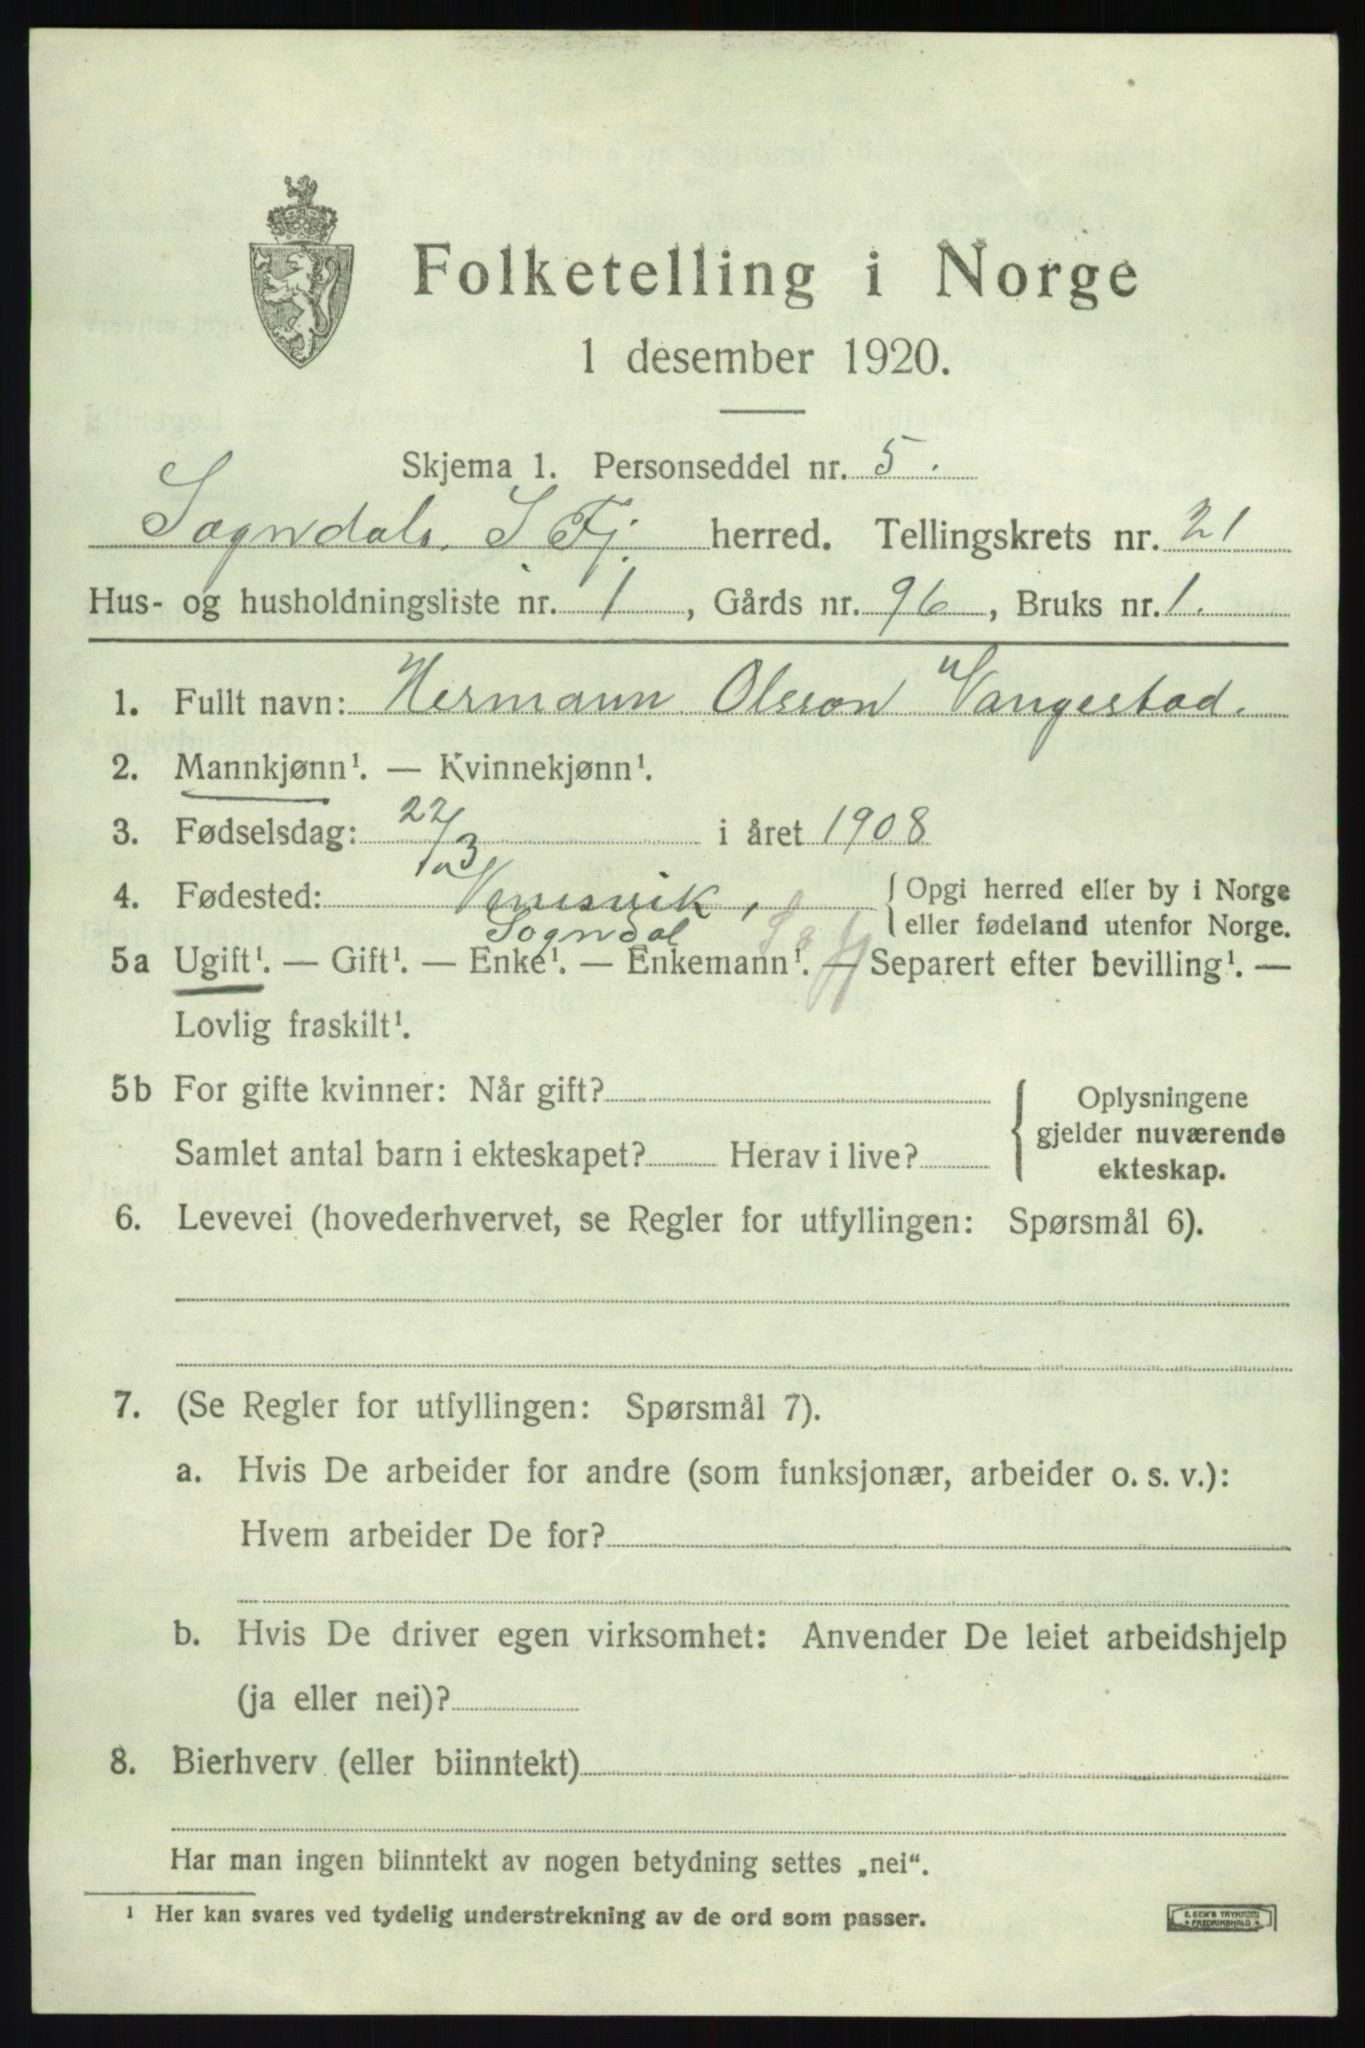 Folketelling i Norge
1 desember 1920.
Skjema 1. Personseddel nr. 5.
Sogndals. S Fj. herred. Tellingskrets nr. 21
Hus- og husholdningsliste nr. 1, Gårds nr. 96, Bruks nr. 1.
1. Fullt navn: Hermann Olsson Vangestad.
2. Mannkjønn¹. — Kvinnekjønn¹.
3. Fødselsdag: 22/3 i året 1908
4. Fødested: { Opgi herred eller by i Norge
eller fødeland utenfor Norge.
Sogndal
5a Ugift¹. — Gift¹. — Enke¹. — Enkemann¹. — Separert efter bevilling¹. —
Lovlig fraskilt¹.
5b For gifte kvinner: Når gift? { Oplysningene
gjelder nuværende
Samlet antal barn i ekteskapet? Herav i live?
ekteskap.
6. Levevei (hovederhvervet, se Regler for utfyllingen: Spørsmål 6).
7. (Se Regler for utfyllingen: Spørsmål 7).
a. Hvis De arbeider for andre (som funksjonær, arbeider o. s. v.):
Hvem arbeider De for?
b. Hvis De driver egen virksomhet: Anvender De leiet arbeidshjelp
(ja eller nei)?
8. Bierhverv (eller biinntekt)
Har man ingen biinntekt av nogen betydning settes „nei“.
¹ Her kan svares ved tydelig understrekning av de ord som passer.
E. SEM'S TRYKKERI
FREDRIKSHALD